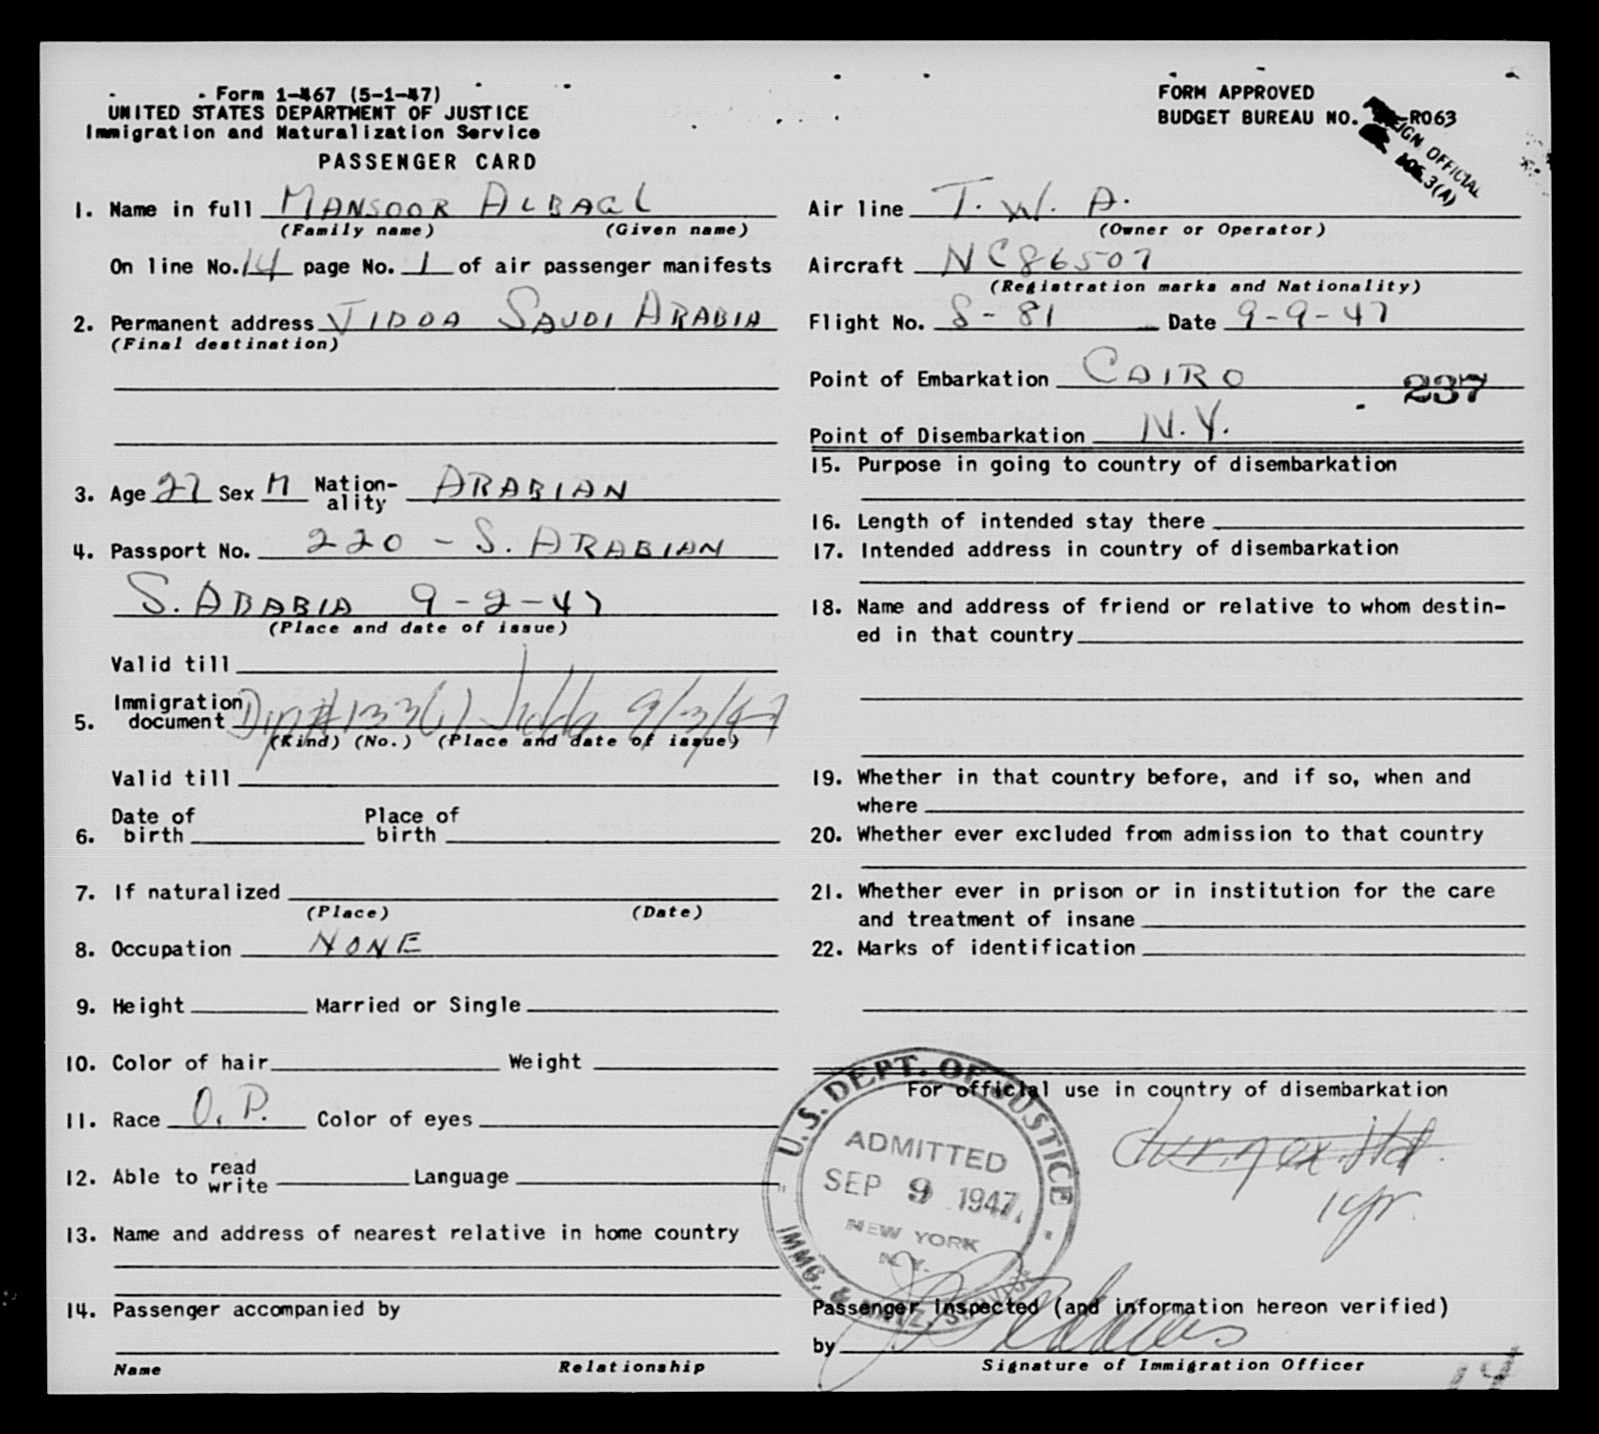 Form 1-467 (5-1-47)
UNITED STATES DEPARTMENT OF JUSTICE
Immigration and Naturalization Service
PASSENGER CARD
FORM APPROVED
BUDGET BUREAU NO. R063
IGN OFFICIAL
3(A)
1. Name in full MANSOOR ALBAGL
(Family name) (Given name)
On line No. 14 page No. 1 of air passenger manifests
2. Permanent address JIDDA SAUDI ARABIA
(Final destination)
3. Age 27 Sex M Nation-ality ARABIAN
4. Passport No. 220 - S. ARABIAN
S. ARABIA 9-2-47
(Place and date of issue)
Valid till
5. Immigration document Dip# 133(1) Jidda 9/3/47
(Kind) (No.) (Place and date of issue)
Valid till
6. Date of birth Place of birth
7. If naturalized
(Place) (Date)
8. Occupation NONE
9. Height Married or Single
10. Color of hair Weight
11. Race O.P. Color of eyes
12. Able to read write Language
13. Name and address of nearest relative in home country
14. Passenger accompanied by
Name Relationship
Air line T.W.A.
(Owner or Operator)
Aircraft NC86507
(Registration marks and Nationality)
Flight No. S-81 Date 9-9-47
Point of Embarkation CAIRO
237
Point of Disembarkation N.Y.
15. Purpose in going to country of disembarkation
16. Length of intended stay there
17. Intended address in country of disembarkation
18. Name and address of friend or relative to whom destin-
ed in that country
19. Whether in that country before, and if so, when and
where
20. Whether ever excluded from admission to that country
21. Whether ever in prison or in institution for the care
and treatment of insane
22. Marks of identification
For official use in country of disembarkation
1 yr.
U.S. DEPT. OF JUSTICE
ADMITTED
SEP 9 1947
NEW YORK
N.Y.
IMMG. & NATZ. SERVICE
Passenger Inspected (and information hereon verified)
by
Signature of Immigration Officer
14